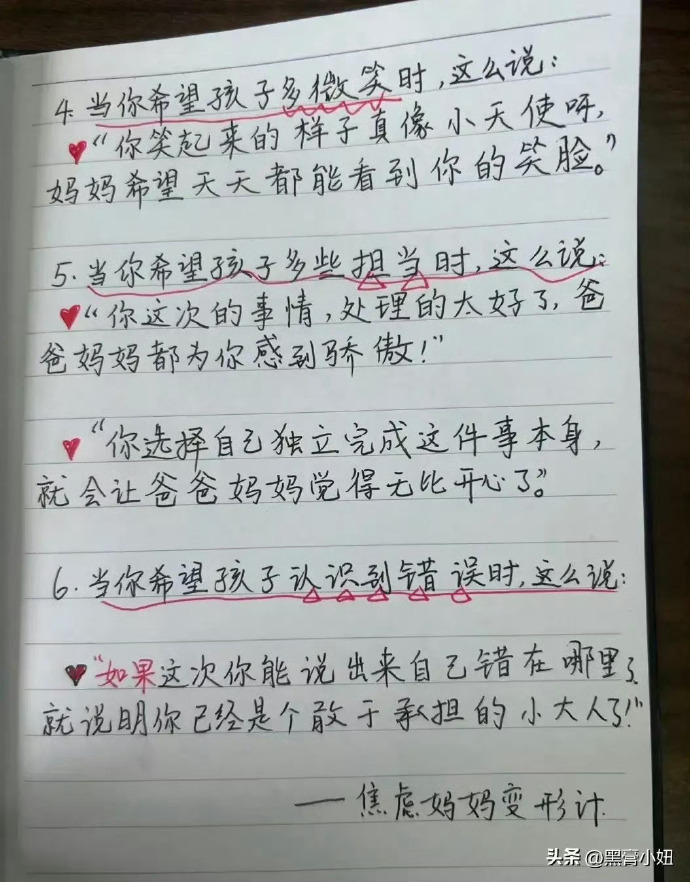 4. 当你希望孩子多微笑时，这么说：
“你笑起来的样子真像小天使呀，
妈妈希望天天都能看到你的笑脸。”
5. 当你希望孩子多些担当时，这么说：
“你这次的事情，处理的太好了，爸
爸妈妈都为你感到骄傲！”
“你选择自己独立完成这件事本身，
就会让爸爸妈妈觉得无比开心了。”
6. 当你希望孩子认识到错误时，这么说：
“如果这次你能说出来自己错在哪里了，
就说明你已经是个敢于承担的小大人了！”
——焦虑妈妈变形计
头条 @黑膏小妞